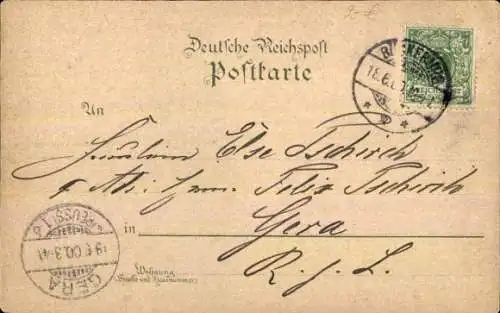 Deutsche Reichspost
Postkarte
An
Fräulein Else Tschirch
Felix Tschirch
in Gera
R. j. L.
Wohnung
(Straße und Hausnummer)
GERA
(REUSS) j. L.
19.6.00.3-4